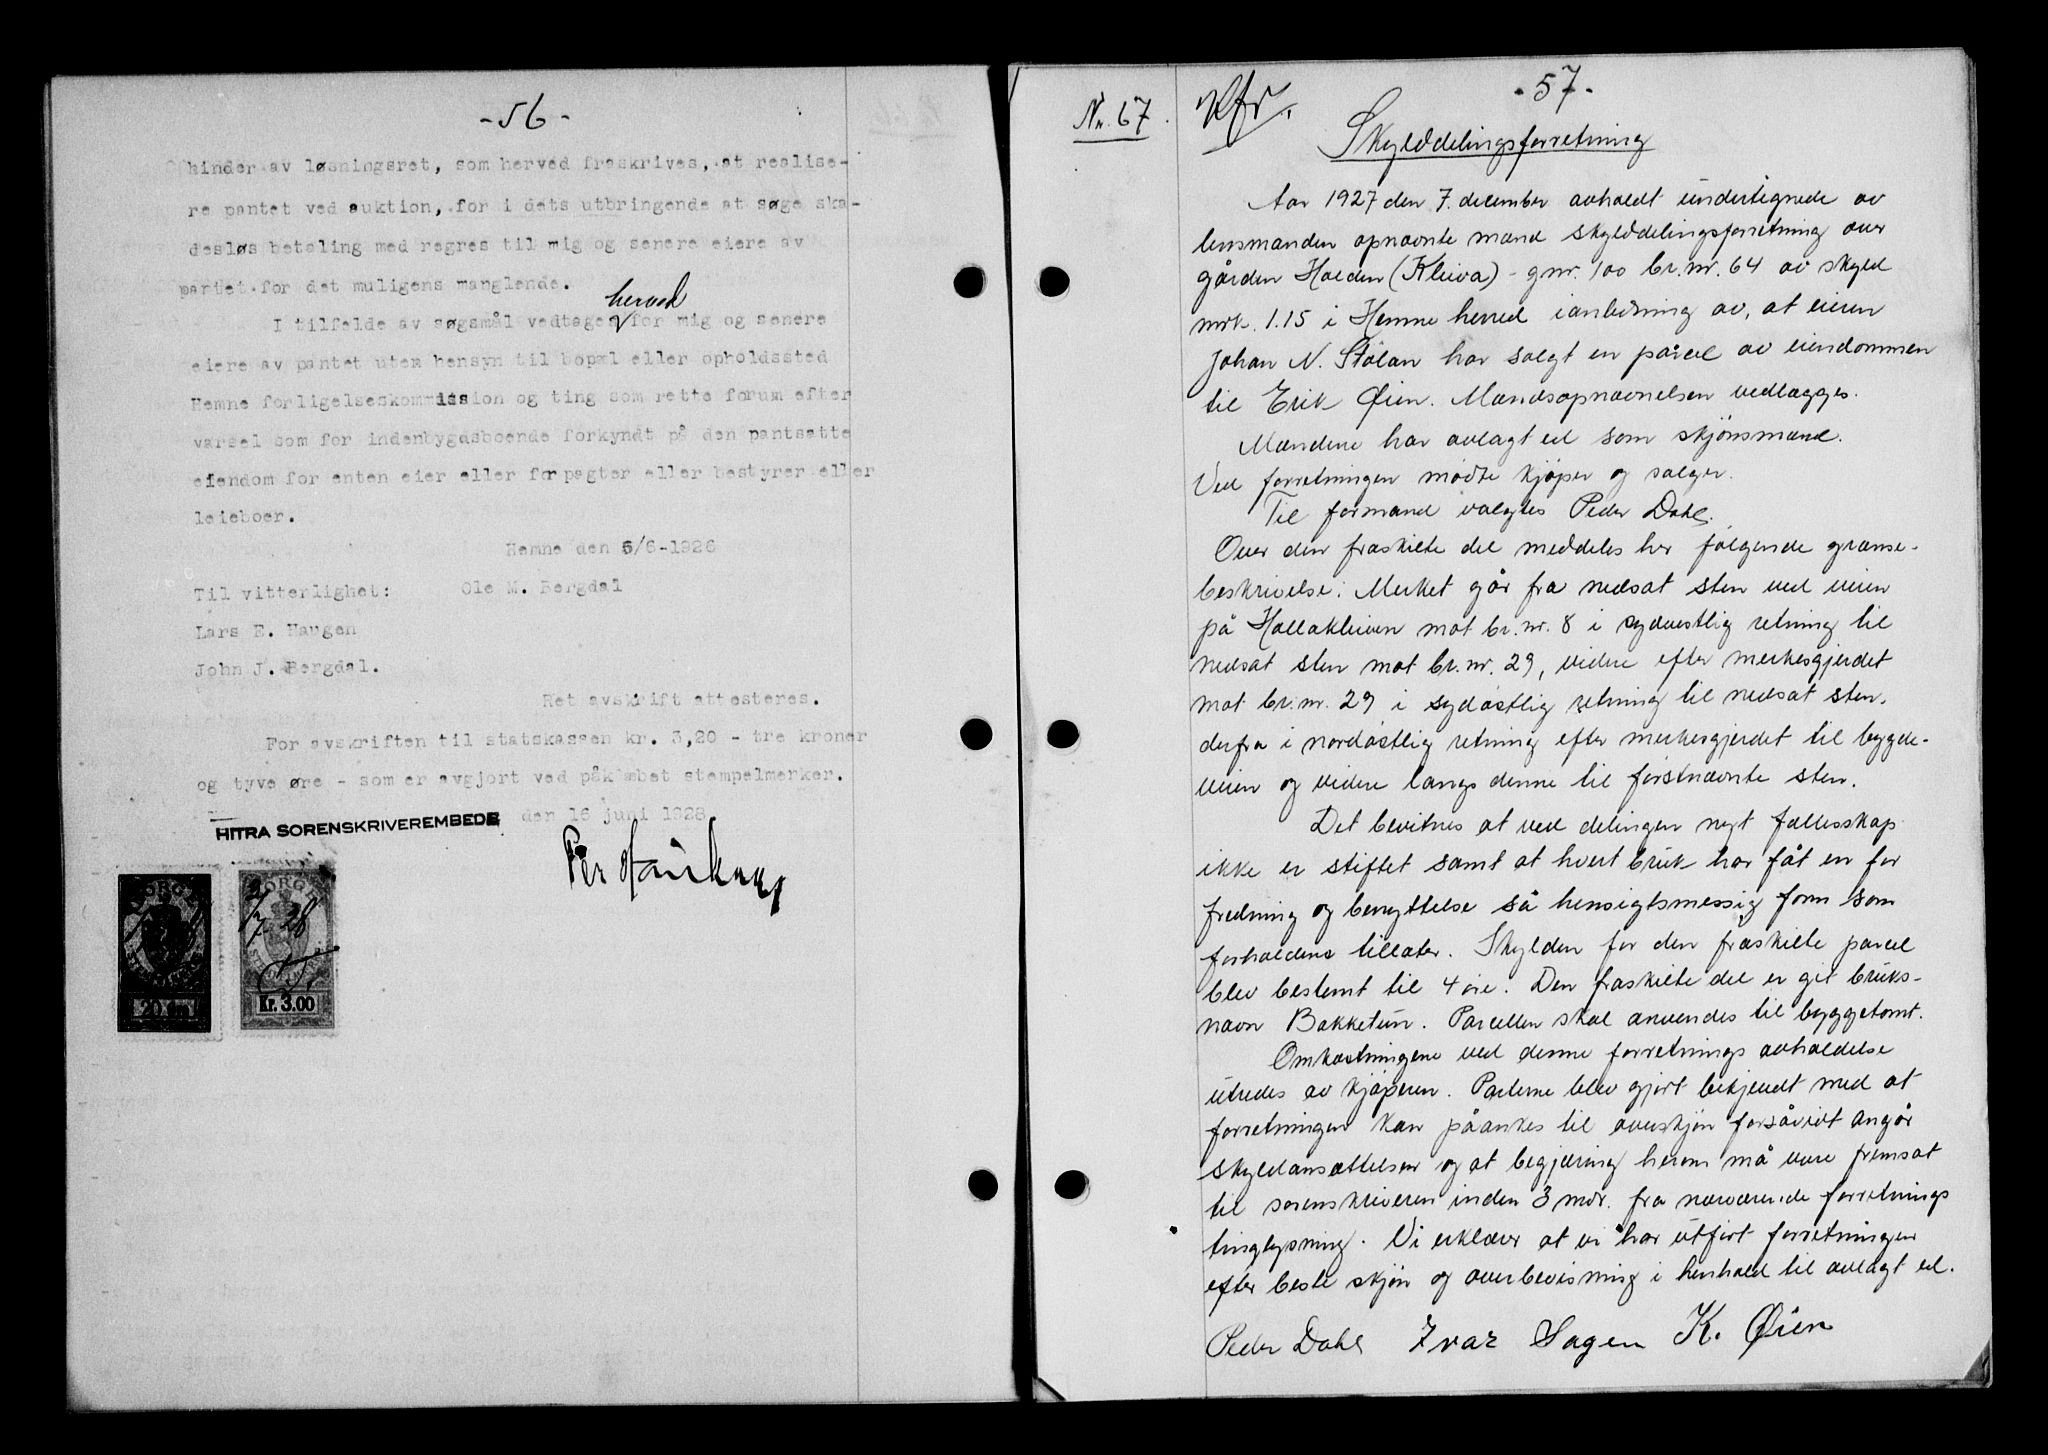 - 56 -
hinder av løsningsret, som herved fraskrives, at realise-
re pantet ved auktion, for i dets utbringende at søge ska-
desløs betaling med regres til mig og senere eiere av
pantet for det muligens manglende.
herved
I tilfelde av søgsmål vedtages for mig og senere
eiere av pantet uten hensyn til bopæl eller opholdssted
Hemne forligelseskommission og ting som rette forum efter
varsel som for indenbygdsboende forkyndt på den pantsatte
eiendom for enten eier eller forpagter eller bestyrer eller
leieboer.
Hemne den 5/6-1926
Til vitterlighet: Ole M. Bergdal
Lars E. Haugen
John J. Bergdal.
Ret avskrift attesteres.
For avskriften til statskassen kr. 3,20 - tre kroner
og tyve øre - som er avgjort ved påklæbet stempelmerker.
HITRA SORENSKRIVEREMBEDE den 16 juni 1928
NORGE
NORGE
2/7 28
Kr. 3.00
- 57 -
Nr. 67.
Skylddelingsforretning
Aar 1927 den 7. december avholdt undertegnede av
lensmanden opnævnte mænd skylddelingsforretning over
gården Holden (Kleiva) - gnr. 100 br.nr. 64 av skyld
mrk. 1.15 i Hemne herred i anledning av, at eieren
Johan N. Stølan har solgt en parcel av eiendommen
til Erik Øien. Mændsopnævnelsen vedlægges.
Mændene har avlagt ed som skjønsmænd.
Ved forretningen mødte kjøper og sælger.
Til formand valgtes Peder Dahl.
Over den fraskilte del meddeles her følgende grænse-
beskrivelse: Merket går fra nedsat sten ved veien
på Hollakleiven mot br.nr. 8 i sydvestlig retning til
nedsat sten mot br.nr. 29, videre efter merkesgjerdet
mot br.nr. 29 i sydøstlig retning til nedsat sten,
derfra i nordøstlig retning efter merkesgjerdet til bygde-
veien og videre langs denne til førstnævnte sten.
Det bevitnes at ved delingen nyt fællesskap
ikke er stiftet samt at hvert bruk har fåt en for
fredning og benyttelse så hensigtsmessig form som
forholdene tillater. Skylden for den fraskilte parcel
blev bestemt til 4 øre. Den fraskilte del er git bruks-
navn Bakketun. Parcellen skal anvendes til byggetomt.
Omkostningene ved denne forretnings avholdelse
utredes av kjøperen. Parterne blev gjort bekjendt med at
forretningen kan påankes til overskjøn forsåvidt angår
skyldansættelsen og at begjæring herom må være fremsat
til sorenskriveren inden 3 mdr. fra nærværende forretnings
tinglysning. Vi erklærer at vi har utført forretningen
efter beste skjøn og overbevisning i henhold til avlagt ed.
Peder Dahl Ivar Sagen K. Øien